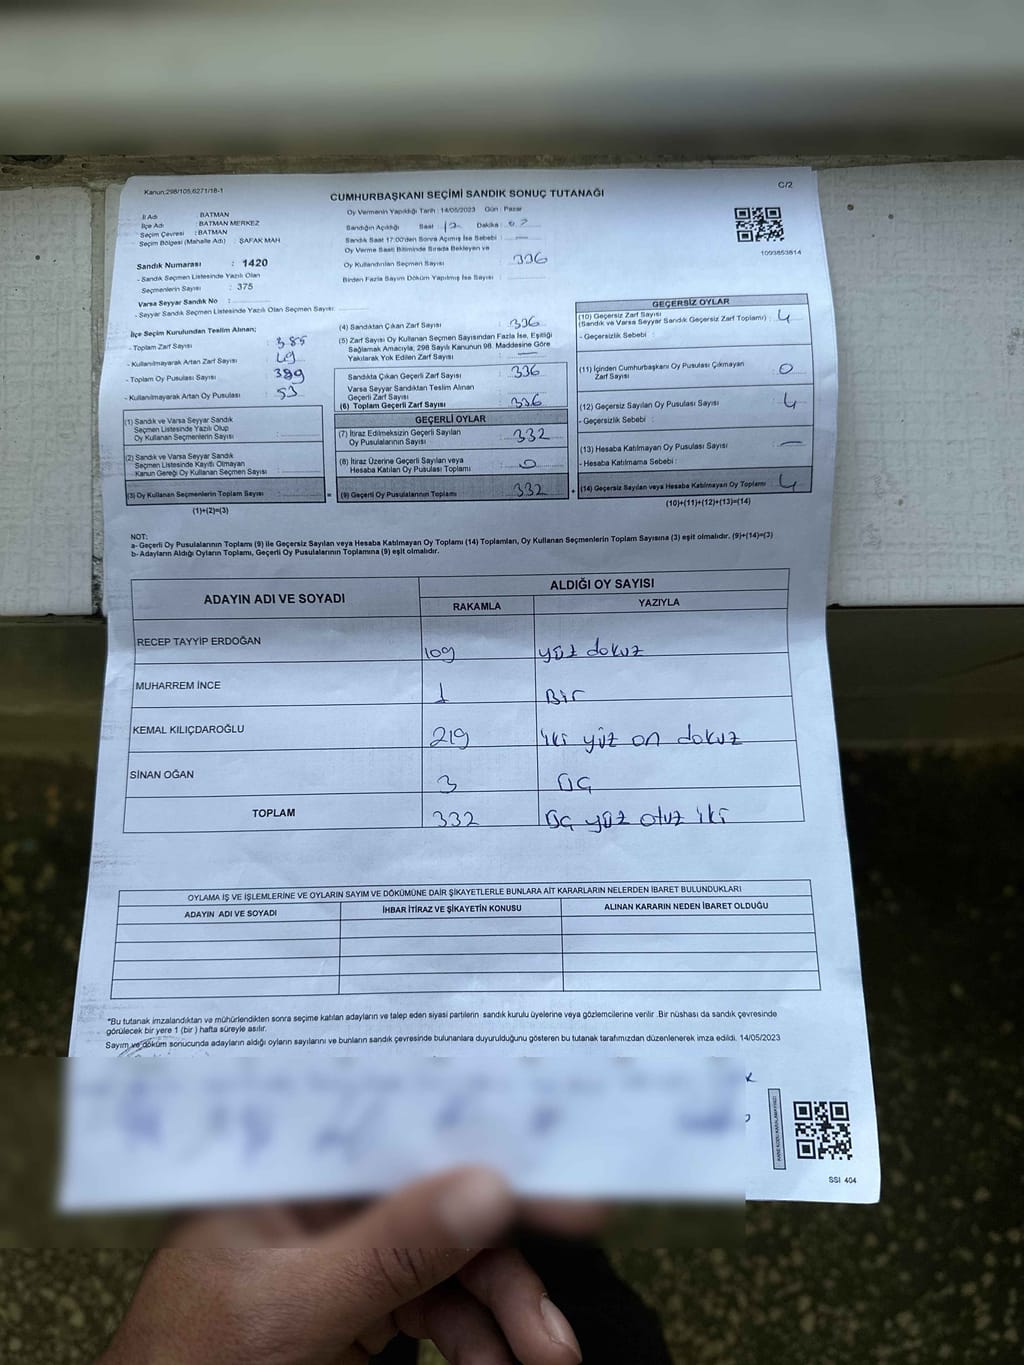 Kanun:298/105,6271/18-1
C/2
CUMHURBAŞKANI SEÇİMİ SANDIK SONUÇ TUTANAĞI
İl Adı : BATMAN
İlçe Adı : BATMAN MERKEZ
Seçim Çevresi : BATMAN
Seçim Bölgesi (Mahalle Adı) : ŞAFAK MAH
Sandık Numarası : 1420
- Sandık Seçmen Listesinde Yazılı Olan
Seçmenlerin Sayısı : 375
Varsa Seyyar Sandık No :
- Seyyar Sandık Seçmen Listesinde Yazılı Olan Seçmen Sayısı:
Oy Vermenin Yapıldığı Tarih : 14/05/2023 Gün : Pazar
Sandığın Açıldığı Saat : 17 Dakika :
Sandık Saat 17:00'den Sonra Açılmış İse Sebebi : —
Oy Verme Saati Bitiminde Sırada Bekleyen ve
Oy Kullandırılan Seçmen Sayısı : 336
Birden Fazla Sayım Döküm Yapılmış İse Sayısı :
1093853814
İlçe Seçim Kurulundan Teslim Alınan;
- Toplam Zarf Sayısı : 385
- Kullanılmayarak Artan Zarf Sayısı : 49
- Toplam Oy Pusulası Sayısı : 389
- Kullanılmayarak Artan Oy Pusulası : 53
(1) Sandık ve Varsa Seyyar Sandık
Seçmen Listesinde Yazılı Olup
Oy Kullanan Seçmenlerin Sayısı :
(2) Sandık ve Varsa Seyyar Sandık
Seçmen Listesinde Kayıtlı Olmayan
Kanun Gereği Oy Kullanan Seçmen Sayısı :
(3) Oy Kullanan Seçmenlerin Toplam Sayısı :
(1)+(2)=(3)
(4) Sandıktan Çıkan Zarf Sayısı : 336
(5) Zarf Sayısı Oy Kullanan Seçmen Sayısından Fazla İse, Eşitliği
Sağlamak Amacıyla, 298 Sayılı Kanunun 98. Maddesine Göre
Yakılarak Yok Edilen Zarf Sayısı : —
Sandıkta Çıkan Geçerli Zarf Sayısı : 336
Varsa Seyyar Sandıktan Teslim Alınan
Geçerli Zarf Sayısı :
(6) Toplam Geçerli Zarf Sayısı : 336
GEÇERLİ OYLAR
(7) İtiraz Edilmeksizin Geçerli Sayılan
Oy Pusulalarının Sayısı : 332
(8) İtiraz Üzerine Geçerli Sayılan veya
Hesaba Katılan Oy Pusulası Toplamı : 0
(9) Geçerli Oy Pusulalarının Toplamı : 332
GEÇERSİZ OYLAR
(10) Geçersiz Zarf Sayısı
(Sandık ve Varsa Seyyar Sandık Geçersiz Zarf Toplamı) : 4
- Geçersizlik Sebebi :
(11) İçinden Cumhurbaşkanı Oy Pusulası Çıkmayan
Zarf Sayısı : 0
(12) Geçersiz Sayılan Oy Pusulası Sayısı : 4
- Geçersizlik Sebebi :
(13) Hesaba Katılmayan Oy Pusulası Sayısı : —
- Hesaba Katılmama Sebebi :
(14) Geçersiz Sayılan veya Hesaba Katılmayan Oy Toplamı : 4
(10)+(11)+(12)+(13)=(14)
NOT:
a- Geçerli Oy Pusulalarının Toplamı (9) ile Geçersiz Sayılan veya Hesaba Katılmayan Oy Toplamı (14) Toplamları, Oy Kullanan Seçmenlerin Toplam Sayısına (3) eşit olmalıdır. (9)+(14)=(3)
b- Adayların Aldığı Oyların Toplamı, Geçerli Oy Pusulalarının Toplamına (9) eşit olmalıdır.
ADAYIN ADI VE SOYADI ALDIĞI OY SAYISI
RAKAMLA YAZIYLA
RECEP TAYYİP ERDOĞAN 109 yüz dokuz
MUHARREM İNCE 1 Bir
KEMAL KILIÇDAROĞLU 219 iki yüz on dokuz
SİNAN OĞAN 3 üç
TOPLAM 332 üç yüz otuz iki
OYLAMA İŞ VE İŞLEMLERİNE VE OYLARIN SAYIM VE DÖKÜMÜNE DAİR ŞİKAYETLERLE BUNLARA AİT KARARLARIN NELERDEN İBARET BULUNDUKLARI
ADAYIN ADI VE SOYADI İHBAR İTİRAZ VE ŞİKAYETİN KONUSU ALINAN KARARIN NEDEN İBARET OLDUĞU
*Bu tutanak imzalandıktan ve mühürlendikten sonra seçime katılan adayların ve talep eden siyasi partilerin sandık kurulu üyelerine veya gözlemcilerine verilir .Bir nüshası da sandık çevresinde
görülecek bir yere 1 (bir ) hafta süreyle asılır.
Sayım ve döküm sonucunda adayların aldığı oyların sayılarını ve bunların sandık çevresinde bulunanlara duyurulduğunu gösteren bu tutanak tarafımızdan düzenlenerek imza edildi. 14/05/2023
SSI 404